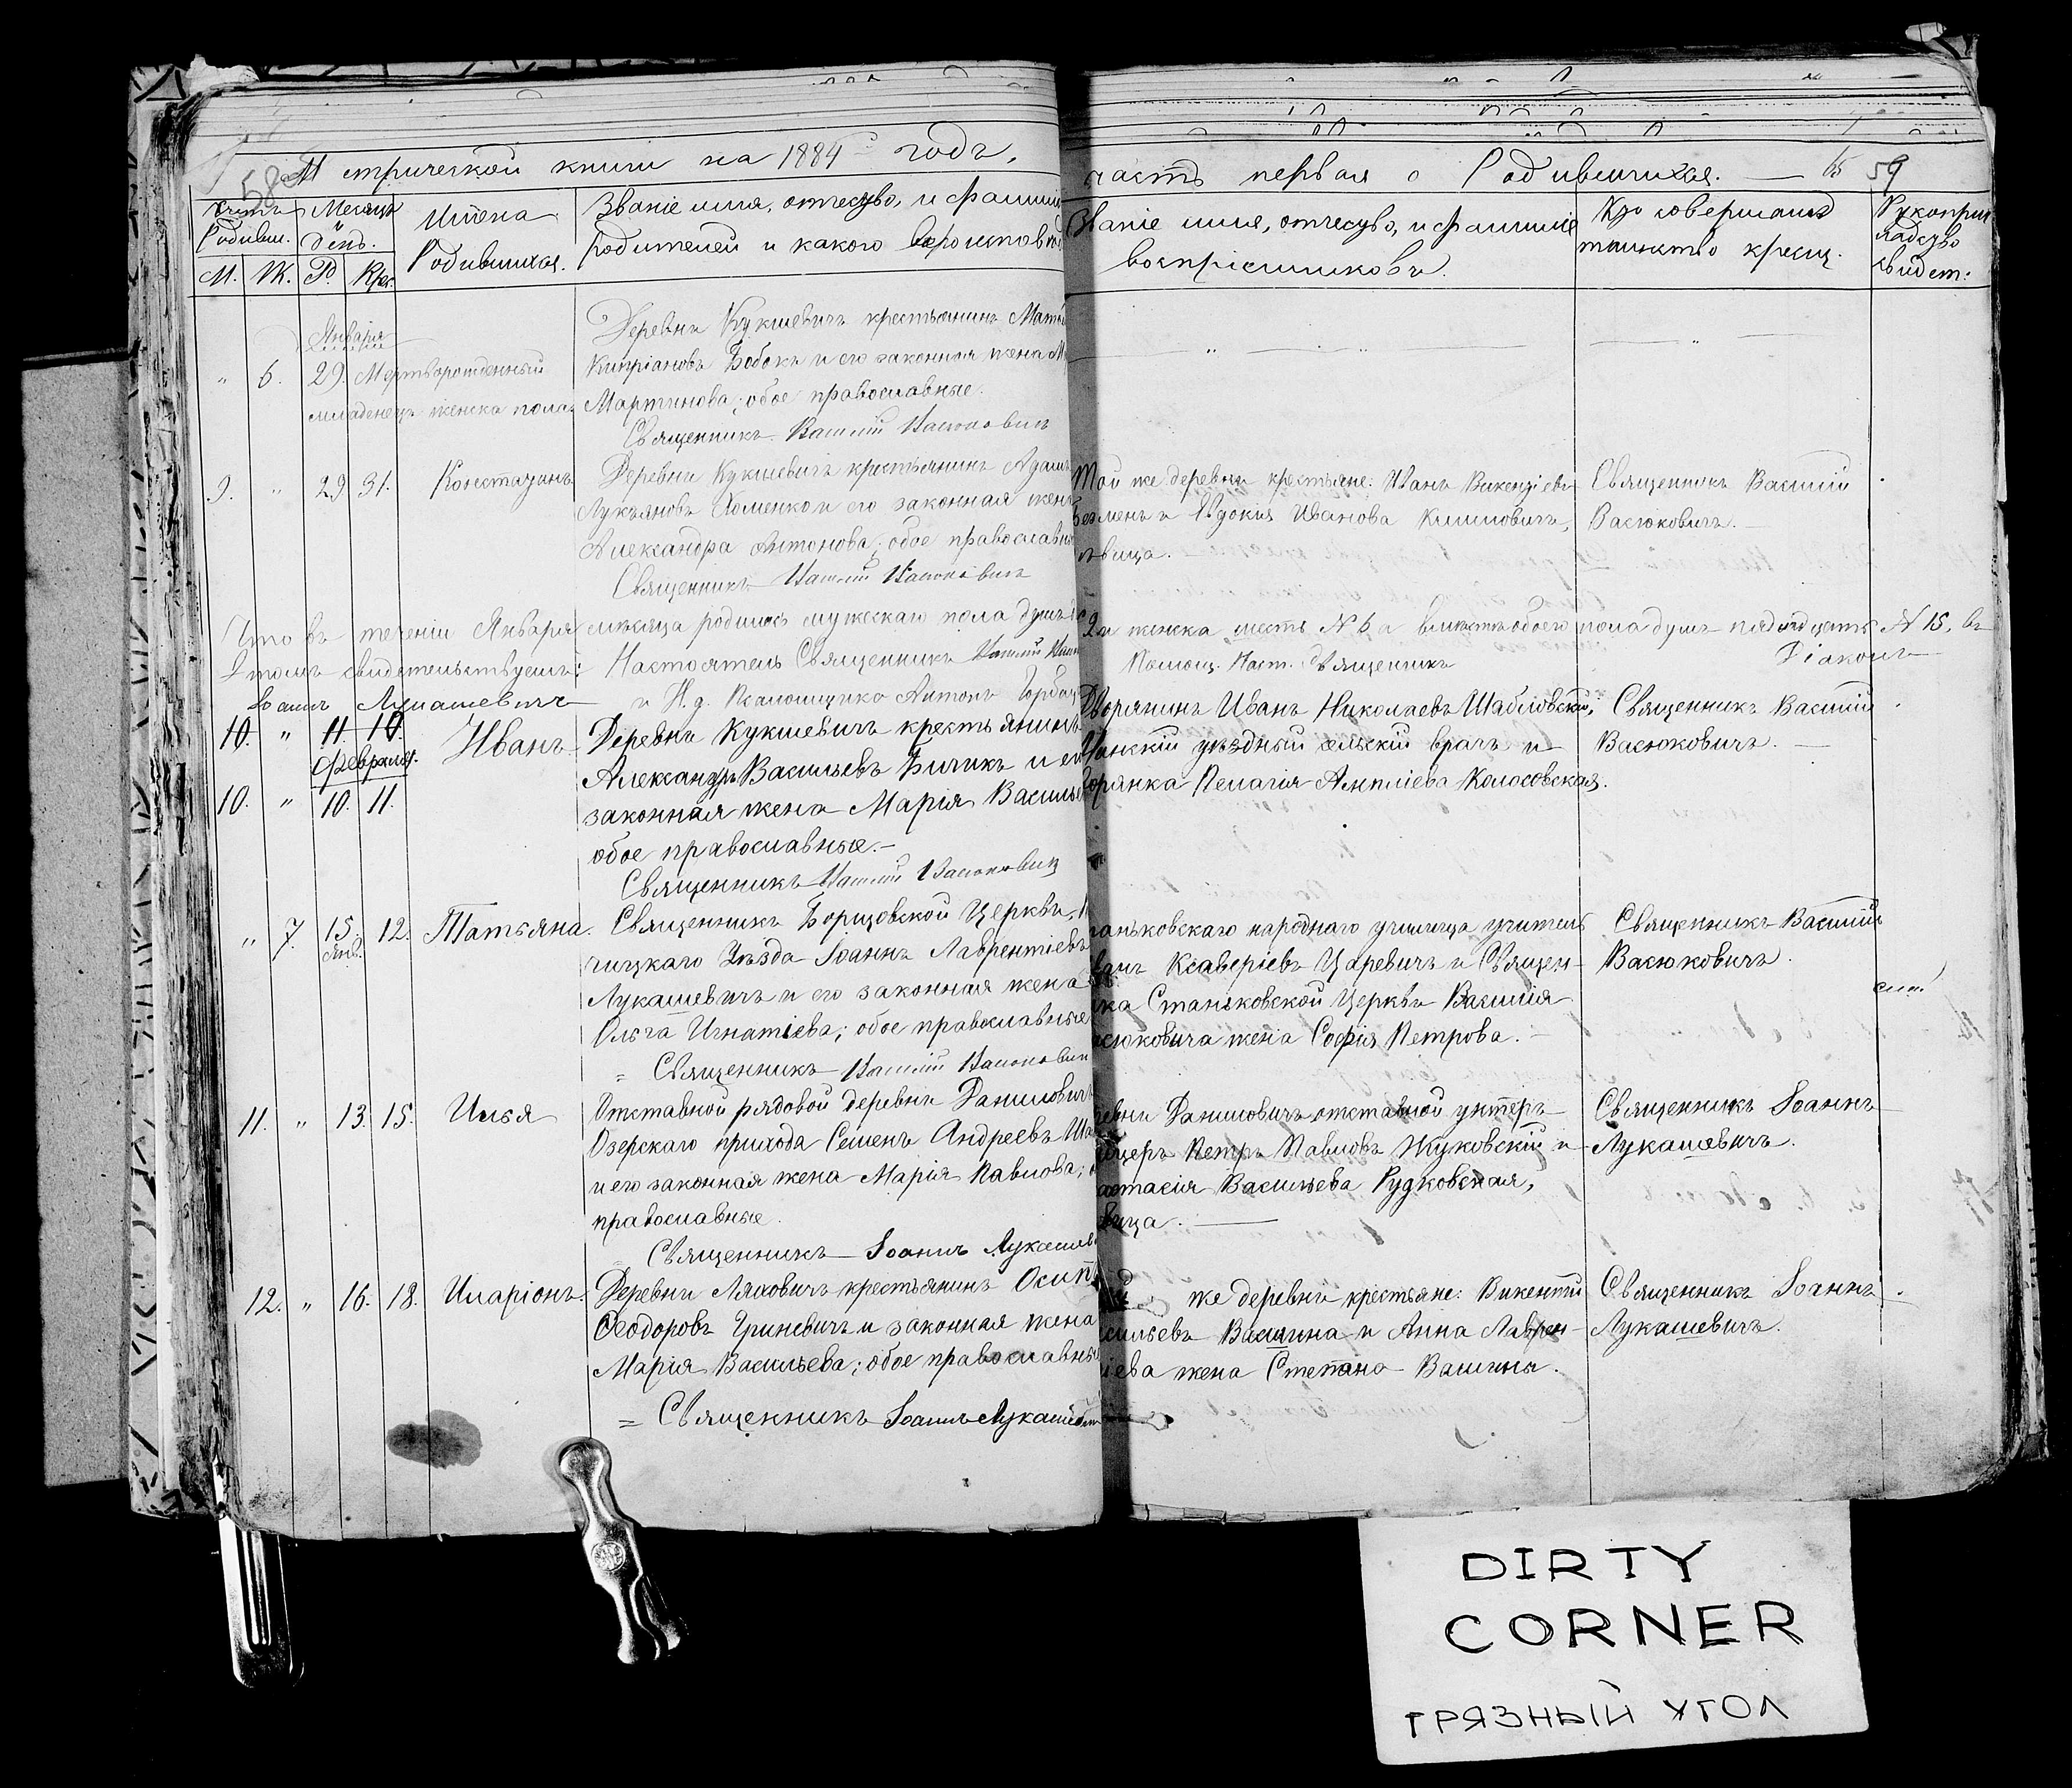 58
Метрической книги на 1884 годъ,
часть первая о Родившихся. — 65 59
Счетъ Родивш.
М. Ж.
Месяцъ и день.
Р. Крещ.
Имена Родившихся.
Званіе имя, отчество, и фамилія
родителей и какого вероисповед
Званіе имя, отчество, и фамилія
воспріемниковъ.
Кто совершалъ
таинство крещ.
Рукоприкладство свидет:
Января
Деревни Кукшевичъ крестьянинъ
" 6. 29. Мертворожденный
младенецъ женска пола.
Кипріановъ Бобокъ и его законная жена
Мартинова; обое православные.
Священникъ Василій Васюковичъ
9. " 29 31. Константинъ
Деревни Кукшевичъ крестьянинъ Адамъ
Лукьяновъ Хоменко и его законная жена
Александра Антонова; обое православные
Священникъ Василій Васюковичъ
Той же деревни крестьяне: Иванъ Викентіевъ
и Евдокия Иванова Климовичъ,
девица.
Священникъ Василій
Васюковичъ.
Что въ теченіи Января месяца родилось мужескаго пола душъ
9 и женска шесть № 6, а вместе обоего пола душъ пятнадцать № 15, въ
томъ свидетельствуемъ: Настоятель Священникъ Василій
Помощ. Наст. Священникъ
Діаконъ
Іоаннъ Лукашевичъ и И. д. Псаломщика Антонъ
10. " 11 10.
Февраля.
10. " 10. 11.
Иванъ
Деревни Кукшевичъ крестьянинъ
Александръ Васильевъ Бичикъ и его
законная жена Марія Василь
обое православные.—
Священникъ Василій Васюковичъ
Дворянинъ Иванъ Николаевъ Шабловскій,
уездный сельскій врачъ и
Пелагія Колосовская.
Священникъ Василій
Васюковичъ. —
" 7. 15. Янв. 12. Татьяна.
Священникъ Борщовской Церкви,
чицкаго Уезда Іоаннъ Лаврентіевъ
Лукашевичъ и его законная жена
Ольга Игнатіева; обое православные
= Священникъ Василій Васюковичъ
народнаго училища учитель
Ксаверіевъ Царевичъ и Священ-
Станьковской Церкви Василія
жена Софія Петрова. —
Священникъ Василій
Васюковичъ.
11. " 13. 15. Илья
Отставной рядовой деревни Даниловичъ
Озерскаго прихода Семенъ Андреевъ
и его законная жена Марія Павлова;
православные.
Священникъ Іоаннъ
Даниловичъ отставной унтеръ-
Петръ Павловъ Жуковскій и
Васильева Рудковская,
Священникъ Іоаннъ
Лукашевичъ.
12. " 16. 18. Иларіонъ.
Деревни Ляховичъ крестьянинъ Осипъ
Феодоровъ Гриневичъ и законная жена
Марія Васильева; обое православные
= Священникъ Іоаннъ Лукашевичъ
же деревни крестьяне: Викентій
Вашина и Анна Лаврен-
жена Степана Вашины.
Священникъ Іоаннъ
Лукашевичъ.
DIRTY
CORNER
ГРЯЗНЫЙ УГОЛ